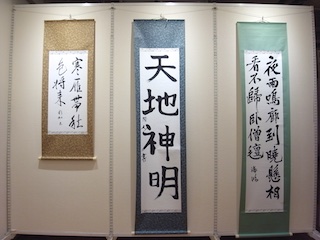 夜雨鳴廊到曉懸相
看不歸臥僧氈
天地神明
寒雁帯秋
色将来